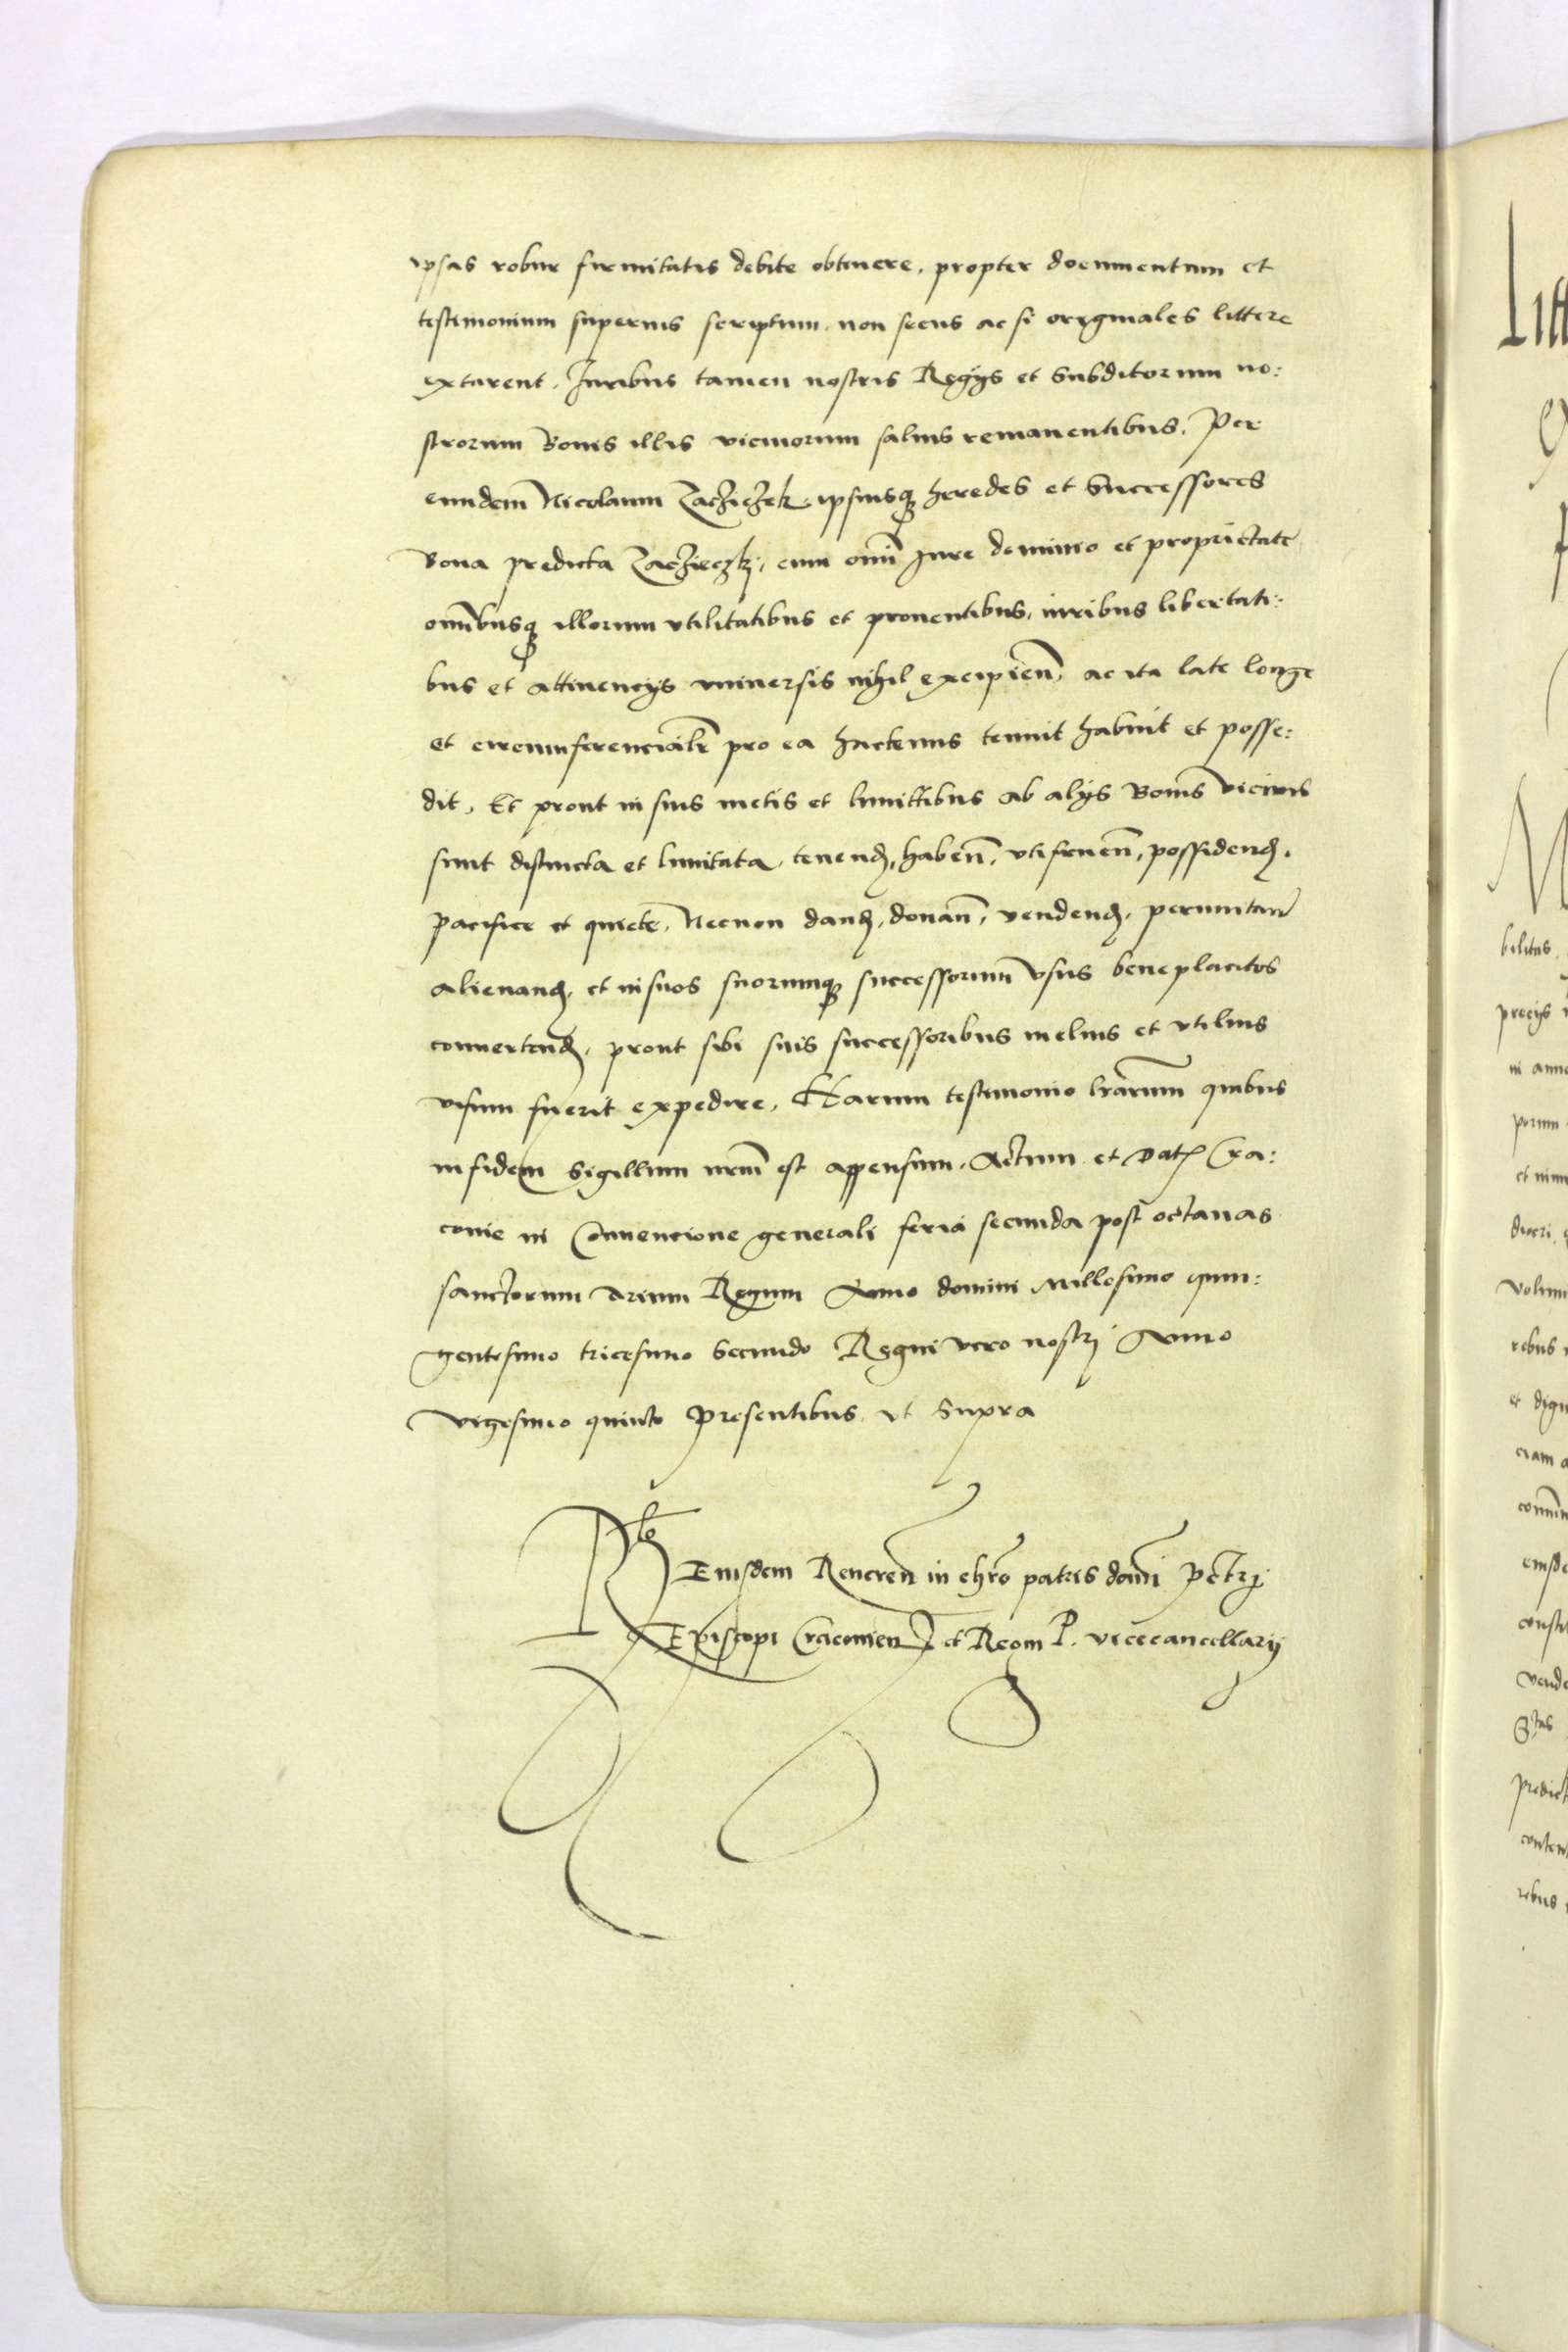 ipsas robur firmitatis debite obtinere, propter documentum et
testimonium superius scriptum, non secus ac si originales littere
extarent. Iuribus tamen nostris Regijs et Subditorum no:
strorum Bonis illis vicinorum saluis remanentibus. Per
eundem Nicolaum Zacziczek, ipsiusq heredes et Successores
Bona predicta Zaczieczkj, cum omi Iure dominio et proprietate
omibusq illorum vtilitatibus et prouentibus, iuribus libertati:
bus et attinencijs vniuersis nihil excipien, ac ita late longe
et circumferencialr pro ea hactenus tenuit habuit et posse:
dit, Et prout in suis metis et limittibus ab alijs Bonis vicinis
sunt distincta et limitata, tenend, haben, vtifruen, possidend,
pacifice et quiete, Necnon dand, donan, vendend, permutan
alienand, et in suos suorumq successorum vsus beneplacitos
conuertend, prout sibi suis successoribus melius et vtilius
visum fuerit expedire, Harum testimonio lrarum quibus
in fidem Sigillum nrm est appensum. Actum et Dat Cra:
couie in Conuencione generali feria secunda post octauas
sanctorum Trium Regum Anno domini Millesimo quin:
gentesimo tricesimo Secundo Regni vero nostrj Anno
vigesimo quinto presentibus vt Supra
Rlo Eiusdem Reueren in chro patris domi Petrj
Episcopi Cracouien et Regni P. vicecancellarij
Litt
bilitas
precijs
in anno
porum
et nim
volum
rebus
et dign
ciam a
predict
conten
rebus